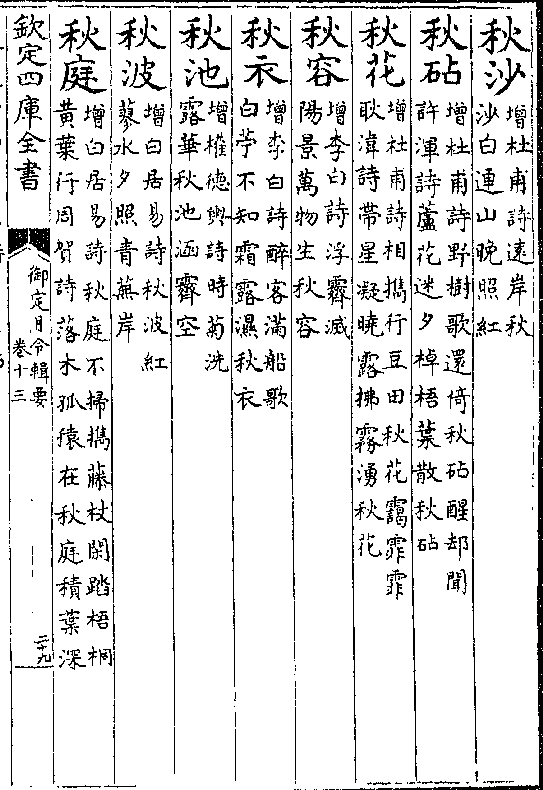 秋沙增杜甫詩遠岸秋
沙白連山晚照紅
秋砧增杜甫詩野樹歌還倚秋砧醒却聞
許渾詩蘆花迷夕棹梧葉散秋砧
秋花增杜甫詩相攜行豆田秋花靄霏霏
耿湋詩帶星凝曉露拂霧湧秋花
秋容增李白詩浮霽滅
陽景萬物生秋容
秋衣增李白詩醉客滿船歌
白苧不知霜露濕秋衣
秋池增權德輿詩時菊洗
露華秋池涵霽空
秋波增白居易詩秋波紅
蓼水夕照青蕪岸
秋庭增白居易詩秋庭不掃攜藤杖閑踏梧桐
黃葉行周賀詩落木孤猿在秋庭積葉深
欽定四庫全書
御定月令輯要
卷十三
二十九